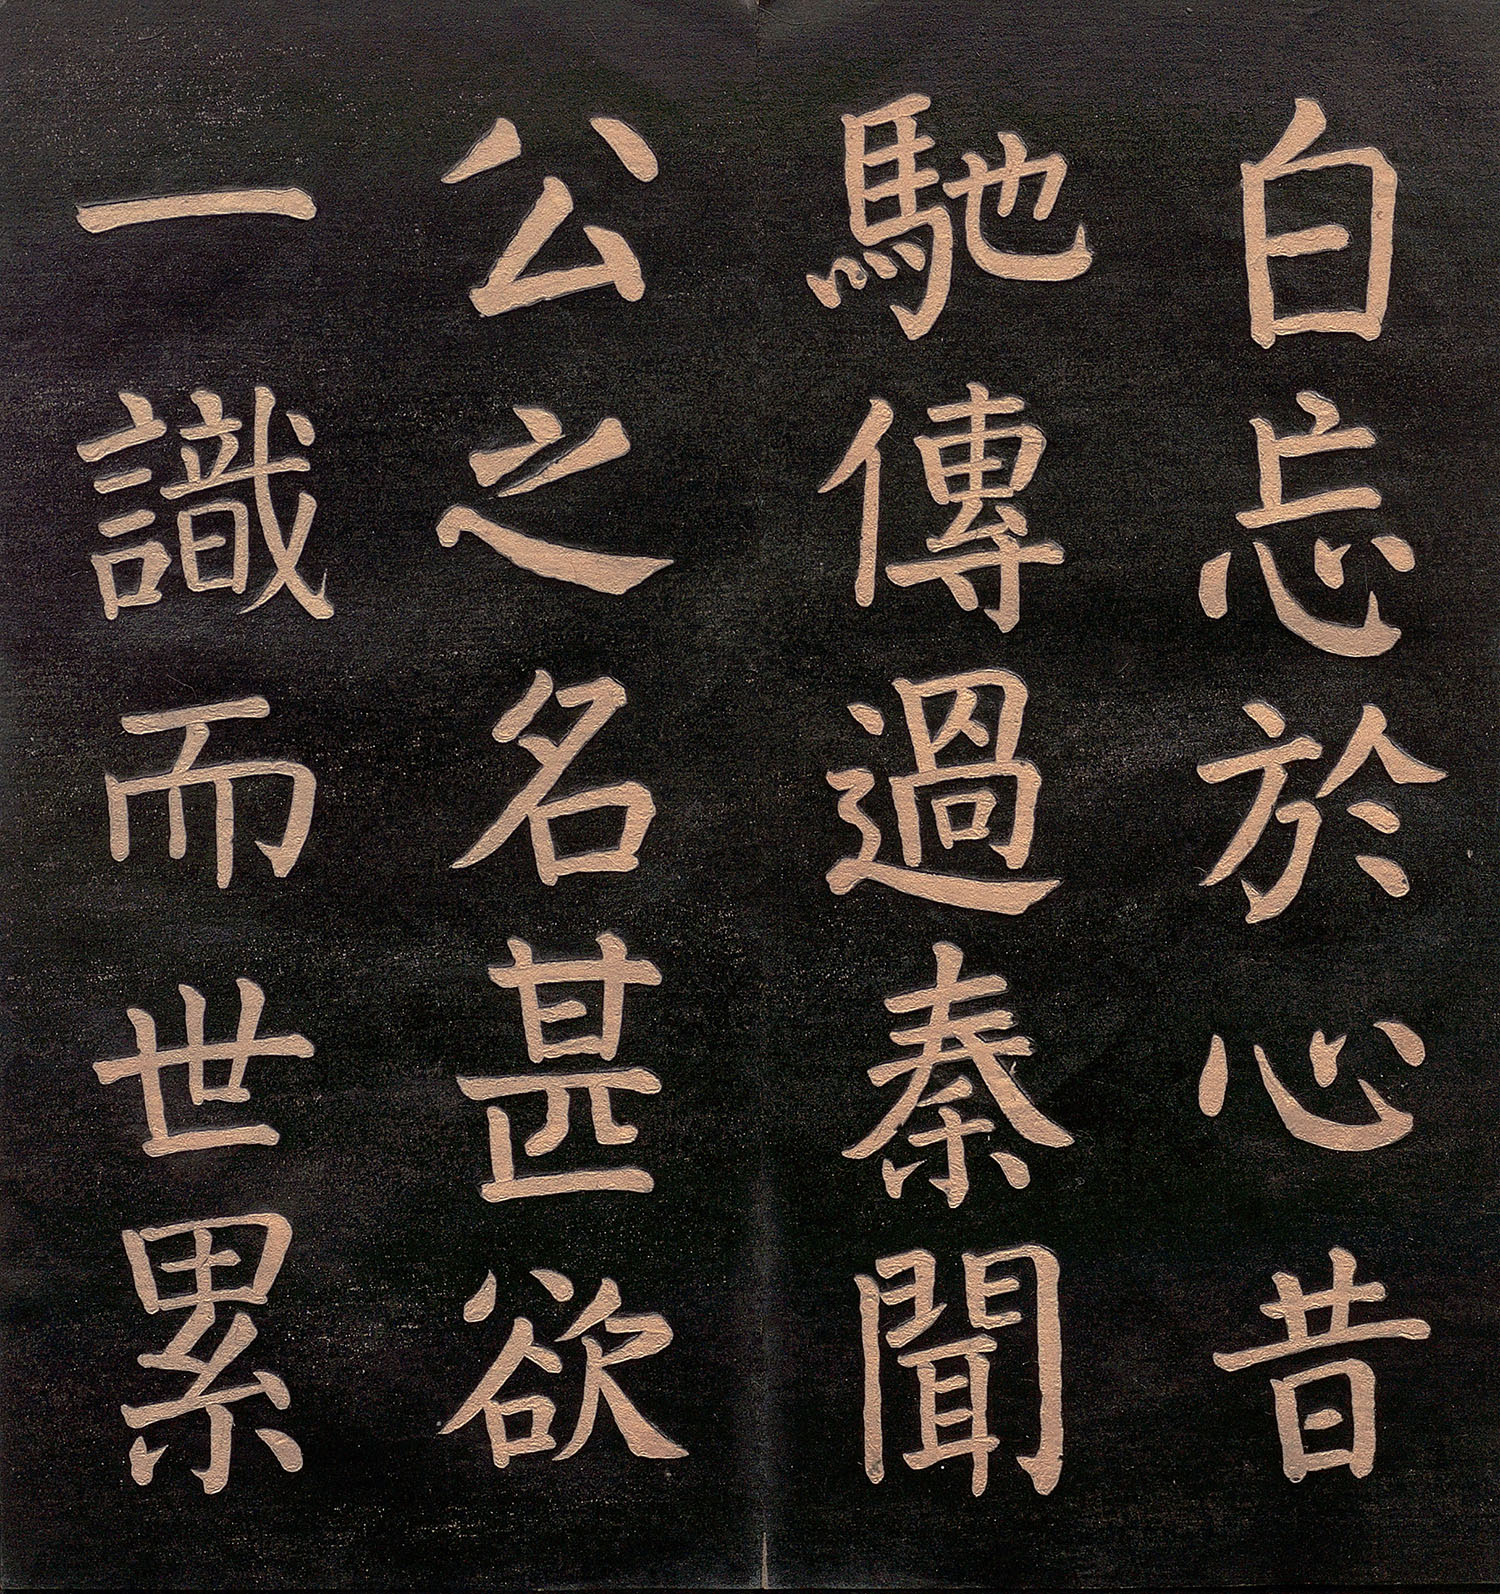 白忘於心昔
馳傳過秦聞
公之名甚欲
一識而世累